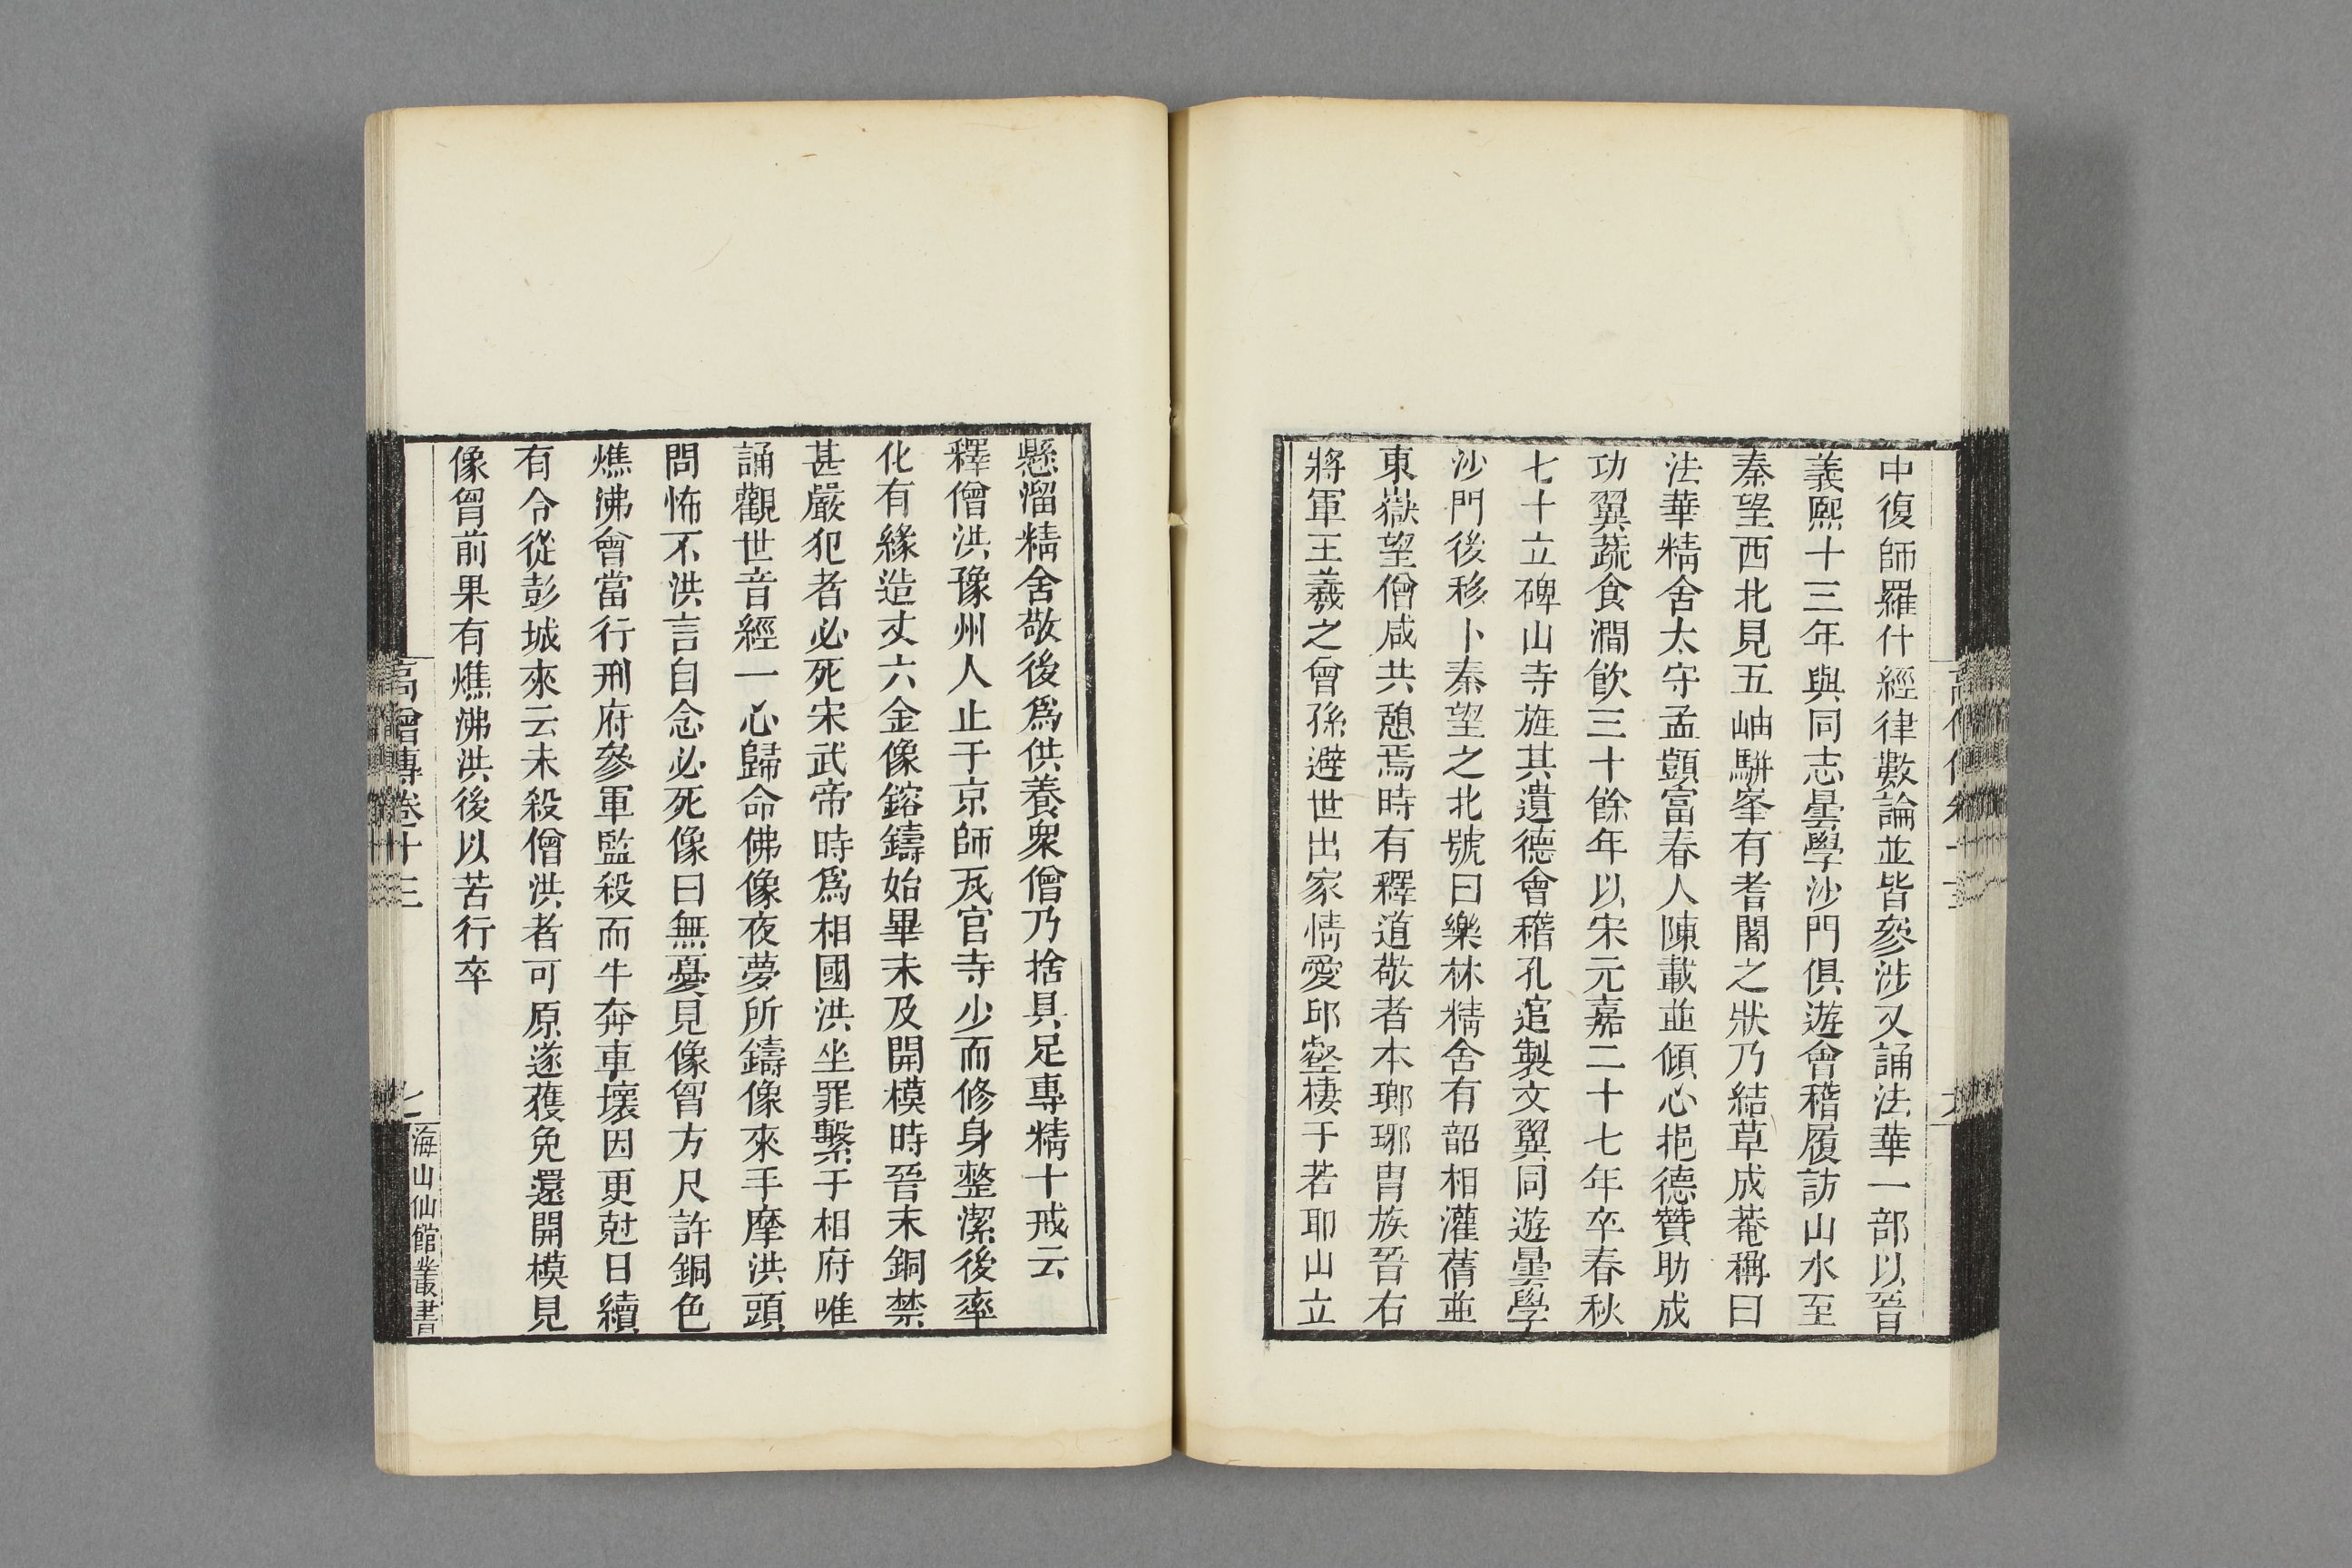 中復師羅什經律數論並皆參涉又誦法華一部以晉
義熙十三年與同志曇學沙門俱遊會稽履訪山水至
秦望西北見五岫駢峯有耆闍之狀乃結草成菴稱曰
法華精舍太守孟顗富春人陳載並傾心挹德贊助成
功翼蔬食澗飲三十餘年以宋元嘉二十七年卒春秋
七十立碑山寺旌其遺德會稽孔逭製文翼同遊曇學
沙門後移卜秦望之北號曰樂林精舍有韶相灌蒨並
東嶽望僧咸共憩焉時有釋道敬者本瑯琊冑族晉右
將軍王羲之曾孫避世出家情愛邱壑棲于若耶山立
懸溜精舍敬後爲供養衆僧乃捨具足專精十戒云
釋僧洪豫州人止于京師瓦官寺少而修身整潔後率
化有緣造丈六金像鎔鑄始畢未及開模時晉末銅禁
甚嚴犯者必死宋武帝時爲相國洪坐罪繫于相府唯
誦觀世音經一心歸命佛像夜夢所鑄像來手摩洪頭
問怖不洪言自念必死像曰無憂見像胷方尺許銅色
燋沸會當行刑府參軍監殺而牛奔車壞因更尅日續
有令從彭城來云未殺僧洪者可原遂獲免還開模見
像胷前果有燋沸洪後以苦行卒
高僧傳卷十三
七
海山仙館叢書